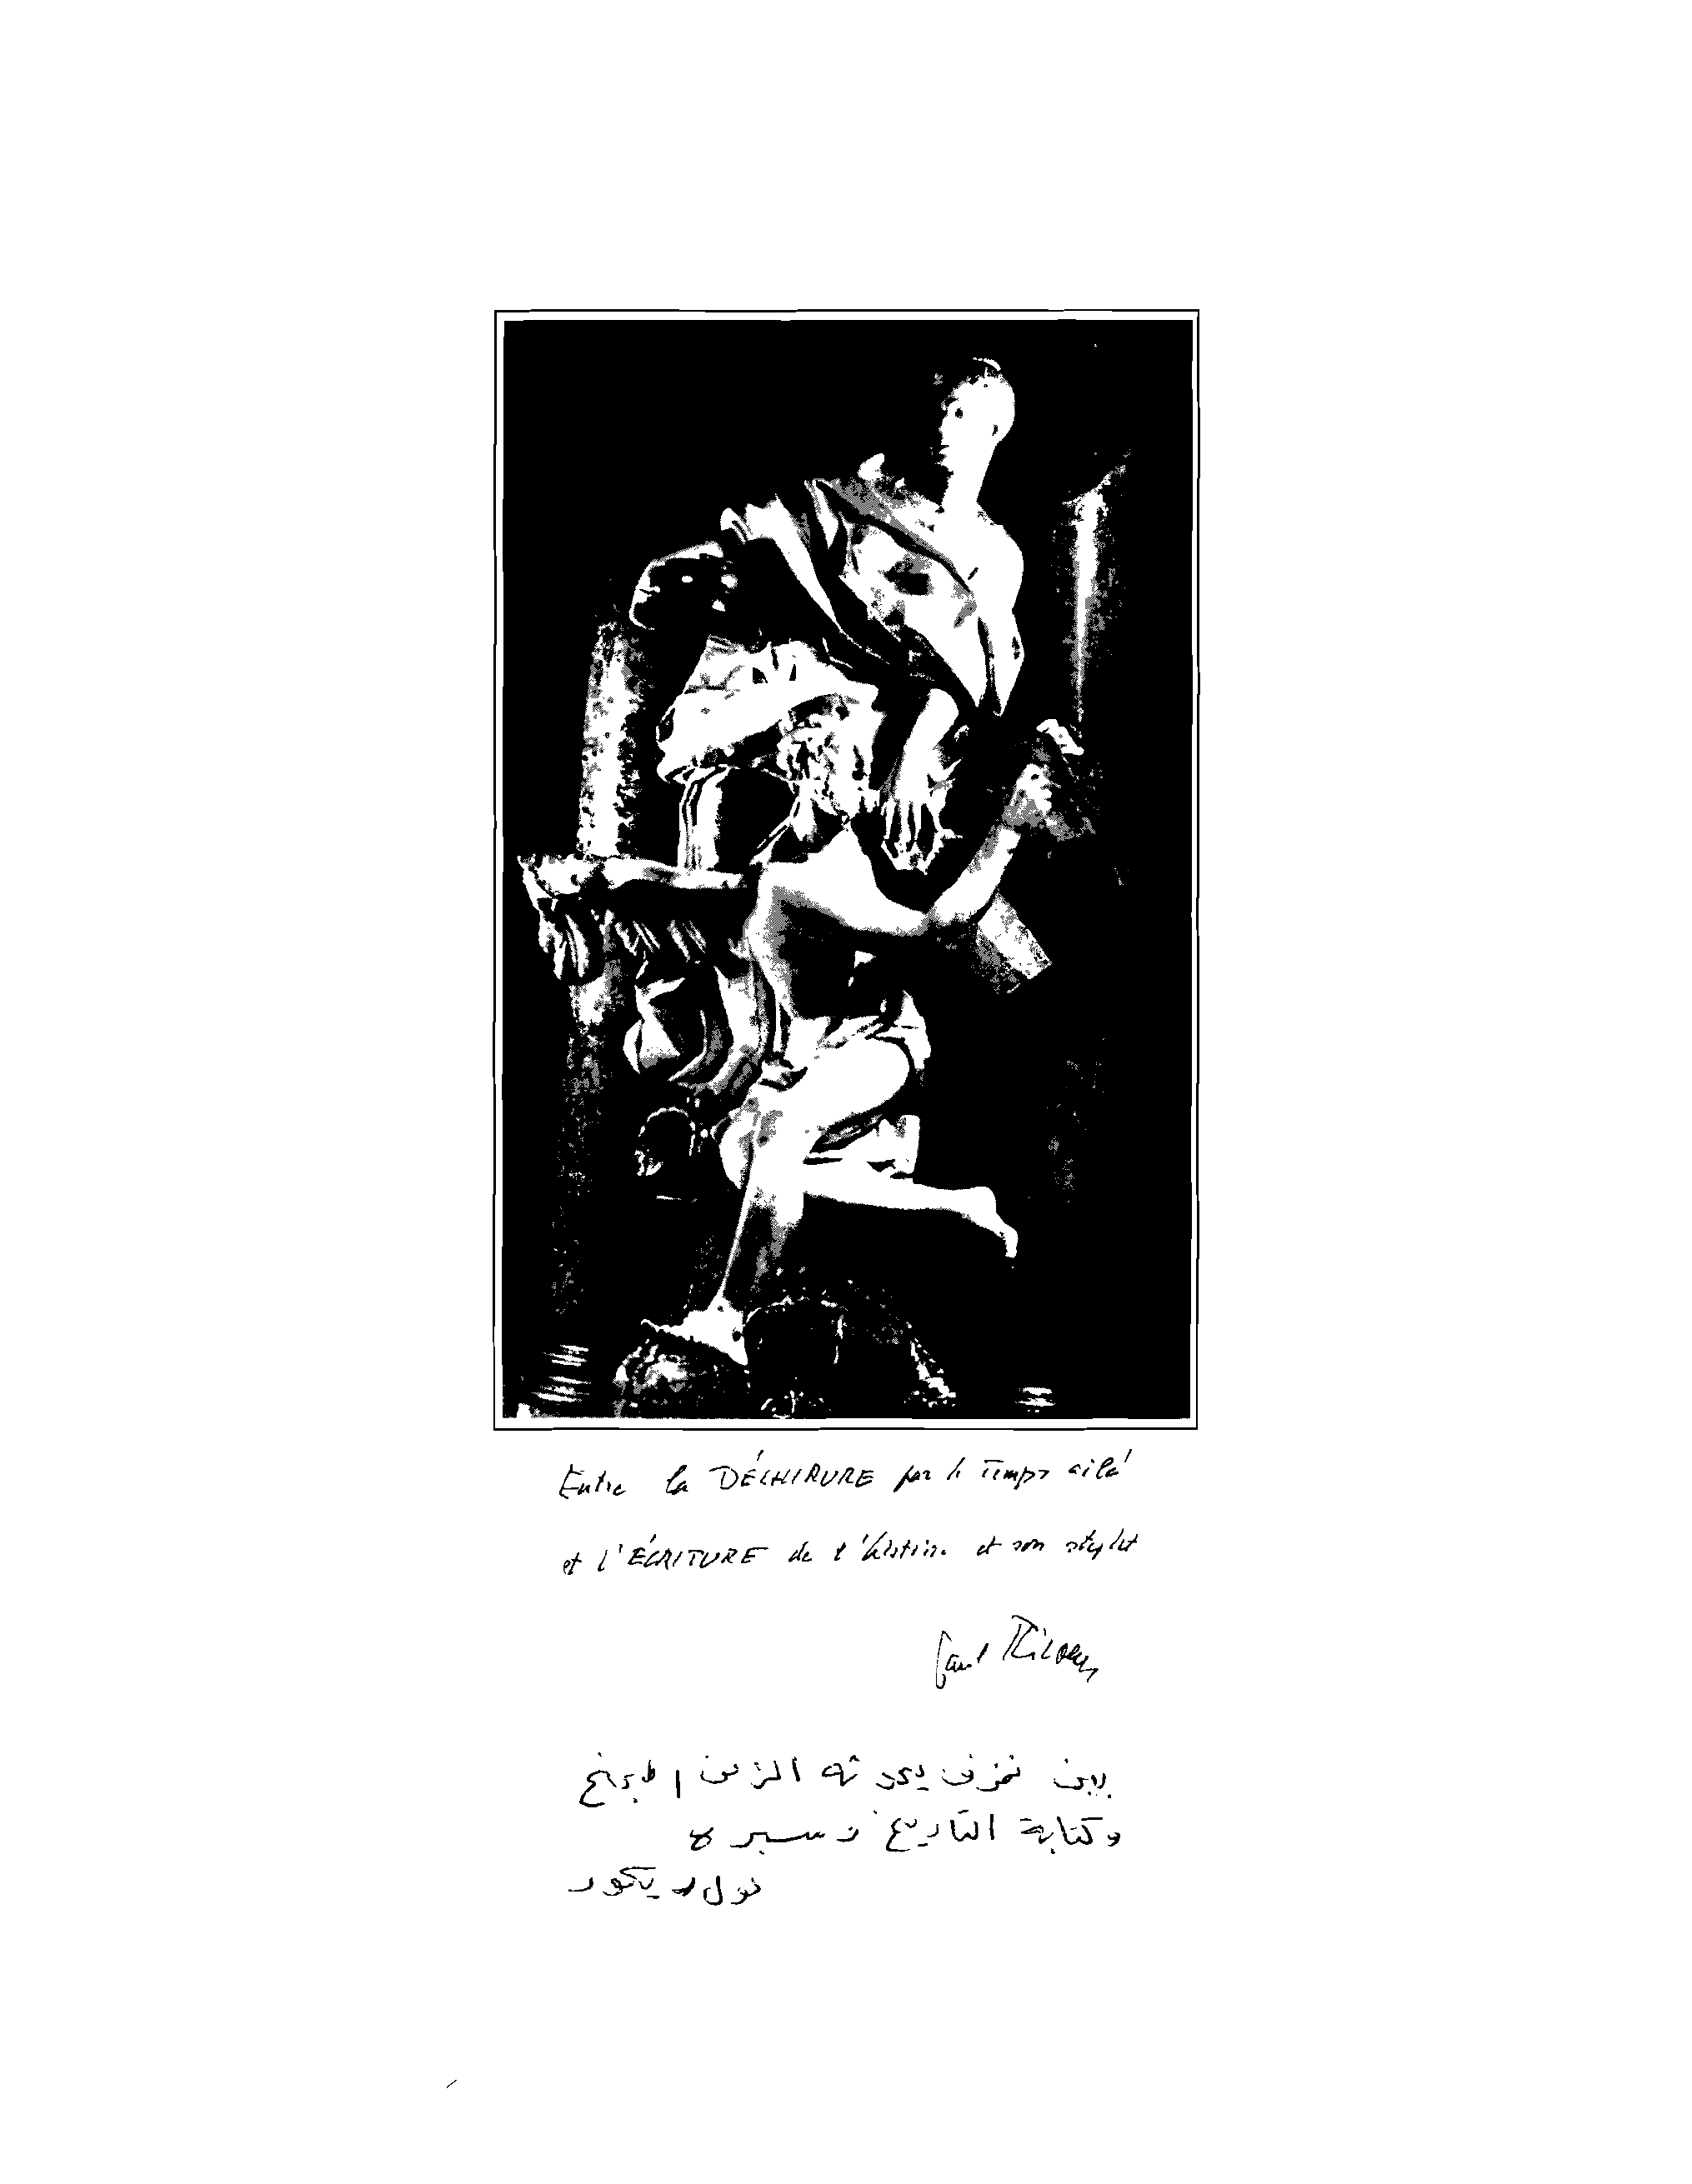 Entre la DÉCHIRURE par le Temps ailé
et l'ÉCRITURE de l'histoire et son stylet
Paul Ricoeur
بين تمزق يحدثه الزمن المجنح
وكتابة التاريخ وسبره
بول ريكور